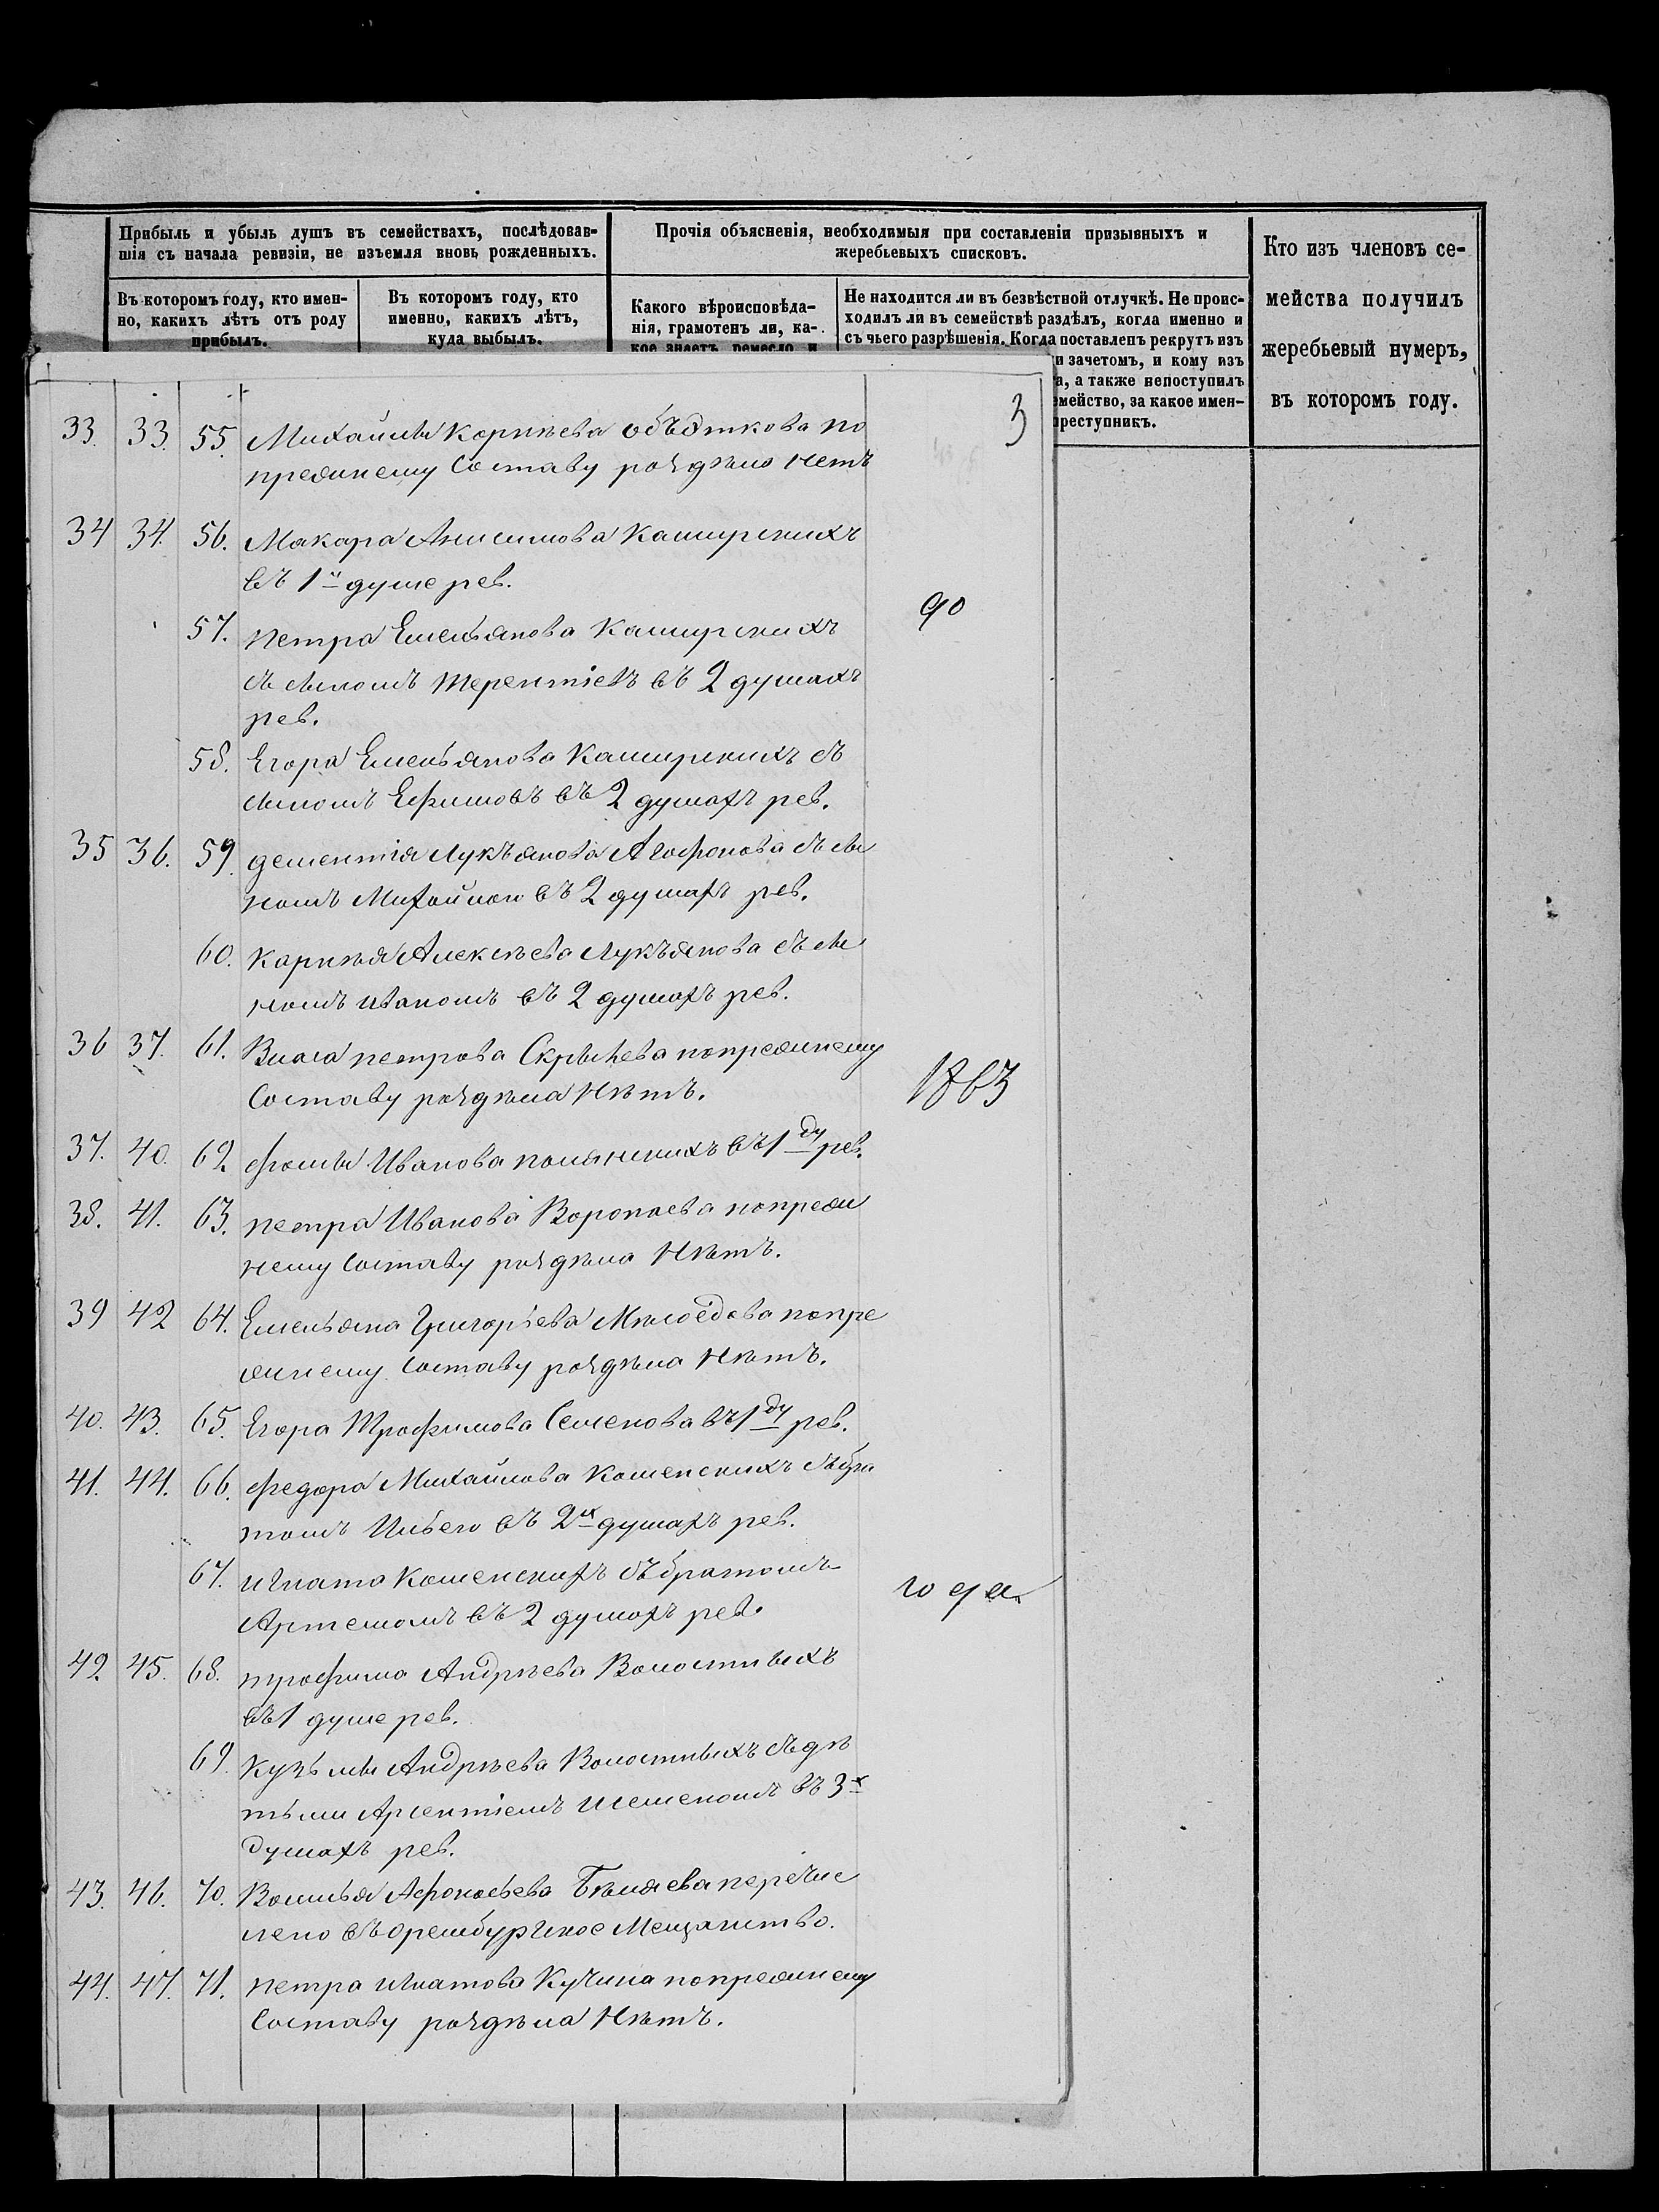 Прибыль и убыль душъ въ семействахъ, послѣдовав-
шія съ начала ревизіи, не изъемля вновь рожденныхъ.
Въ которомъ году, кто имен-
но, какихъ лѣтъ отъ роду
прибылъ.
Въ которомъ году, кто
именно, какихъ лѣтъ,
куда выбылъ.
Прочія объясненія, необходимыя при составленіи призывныхъ и
жеребьевыхъ списковъ.
Какого вѣроисповѣда-
нія, грамотенъ ли, ка-
кое знаетъ ремесло и
Не находится ли въ безвѣстной отлучкѣ. Не проис-
ходилъ ли въ семействѣ раздѣлъ, когда именно и
съ чьего разрѣшенія. Когда поставленъ рекрутъ изъ
и зачетомъ, и кому изъ
а, а также непоступилъ
мейство, за какое имен-
преступникъ.
Кто изъ членовъ се-
мейства получилъ
жеребьевый нумеръ,
въ которомъ году.
3
33. 33. 55. Михайлы Корнѣева объѣдкова по
прежнему Составу роздѣло Нетъ
34 34. 56. Макара Анисимова Каширскихъ
въ 1й душе рев.
57. петра Емельянова Каширскихъ
съ сыномъ терентіевъ въ 2 душахъ
рев.
до
58. Егора Емельянова Каширскихъ съ
сыномъ Ефимовъ въ 2 душахъ рев.
35 36. 59. дементія Лукъянова Агафонова съ сы
номъ Михайлою въ 2 душахъ рев.
60. Карнѣя Алексѣева Лукъянова съ сы
номъ иваномъ въ 2 душахъ рев.
36 37. 61. Власа петрова попрежнему
Составу роздѣла Нѣтъ.
1863
37. 40. 62. фомы Иванова въ 1 ду рев.
38. 41. 63. петра Иванова Воропаева попреж
нему Составу роздѣла Нѣтъ.
39 42 64. Емельяна Григорьева Мясоѣдова попре
жнему Составу роздѣла Нѣтъ.
40. 43. 65. Егора Трофимова Семенова въ 1 ду рев.
41. 44. 66. федора Михайлова Каменскихъ съ бра
томъ Ильею въ 2х душахъ рев.
67. игната Каменскихъ съ братомъ
Артемомъ въ 2 душахъ рев.
года
42 45. 68. трофима Андрѣева Волостныхъ
въ 1 душе рев.
69. Кузьмы Андрѣева Волостныхъ съ дѣ
тьми Арсентіемъ исеменомъ въ 3х
душахъ рев.
43. 46. 70. Василья Афонасьева Бѣляева перечис
лено въ оренбургское Мещанство.
44. 47. 71. петра игнатова Кучина попрежнему
Составу роздѣла Нѣтъ.